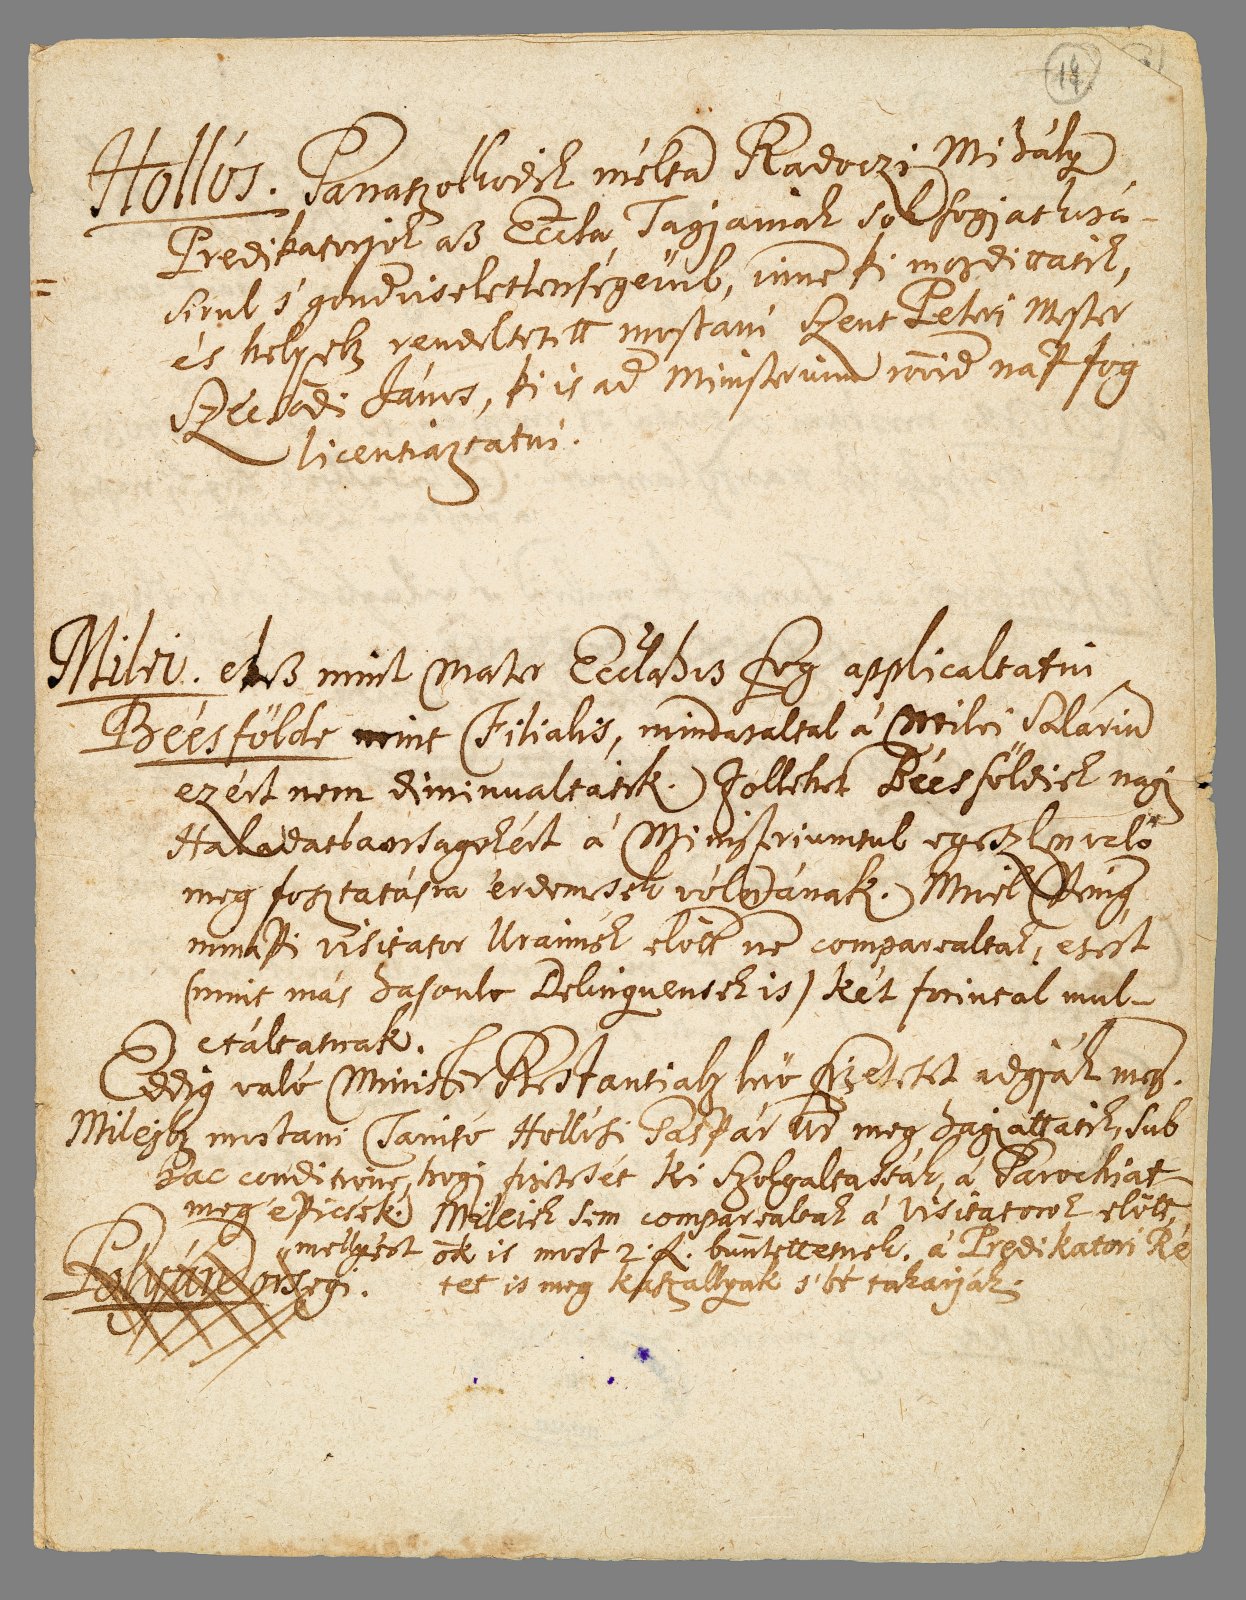 14
Hollós. Panaszolkodik méltán Radoczi Mihály
Predikatorjok aß Eccla Tagjainak sok fogjatkozá-
sirul s' gondviseletlenségérül, innen ki mozdittatik,
és helyek rendeltetett mostani Szent Peteri Mester
Szécsődi János, ki is ad Ministerium rövid nap fog
licentiáztatni.
Milei. eß mint Mater Ecclahoz fog applicaltatni
Béesfölde mint Filialis, mindazaltal á Milei Solarium
ezért nem diminualtatik. Jollehet Béesföldiek nagi
Haladatlansagokért á Ministeriumtul egeszlen való
meg fosztatásra érdemesek vólnának. Mivel
minapi visitator Uraimék elött nem comparealtak, ezert
(mint más hasonlo Delinquensek is) két forintal mul-
ctáltatnak.
Eddig való Minister Restantiak lévő fizetését adgják meg.
Milejbe mostani Tanitó Hollósi Gáspár Ur meg hagiattatik, sub
hac conditione, hogi fizetését ki szolgaltassák, á Parochiat
meg épicsék. Mileiek sem comparealtak á Visitatorok elött,
mellyért ők is most 2. f. büntettetnek. á Predikatori Ré
tet is meg kaszallyak s' bé takarják.